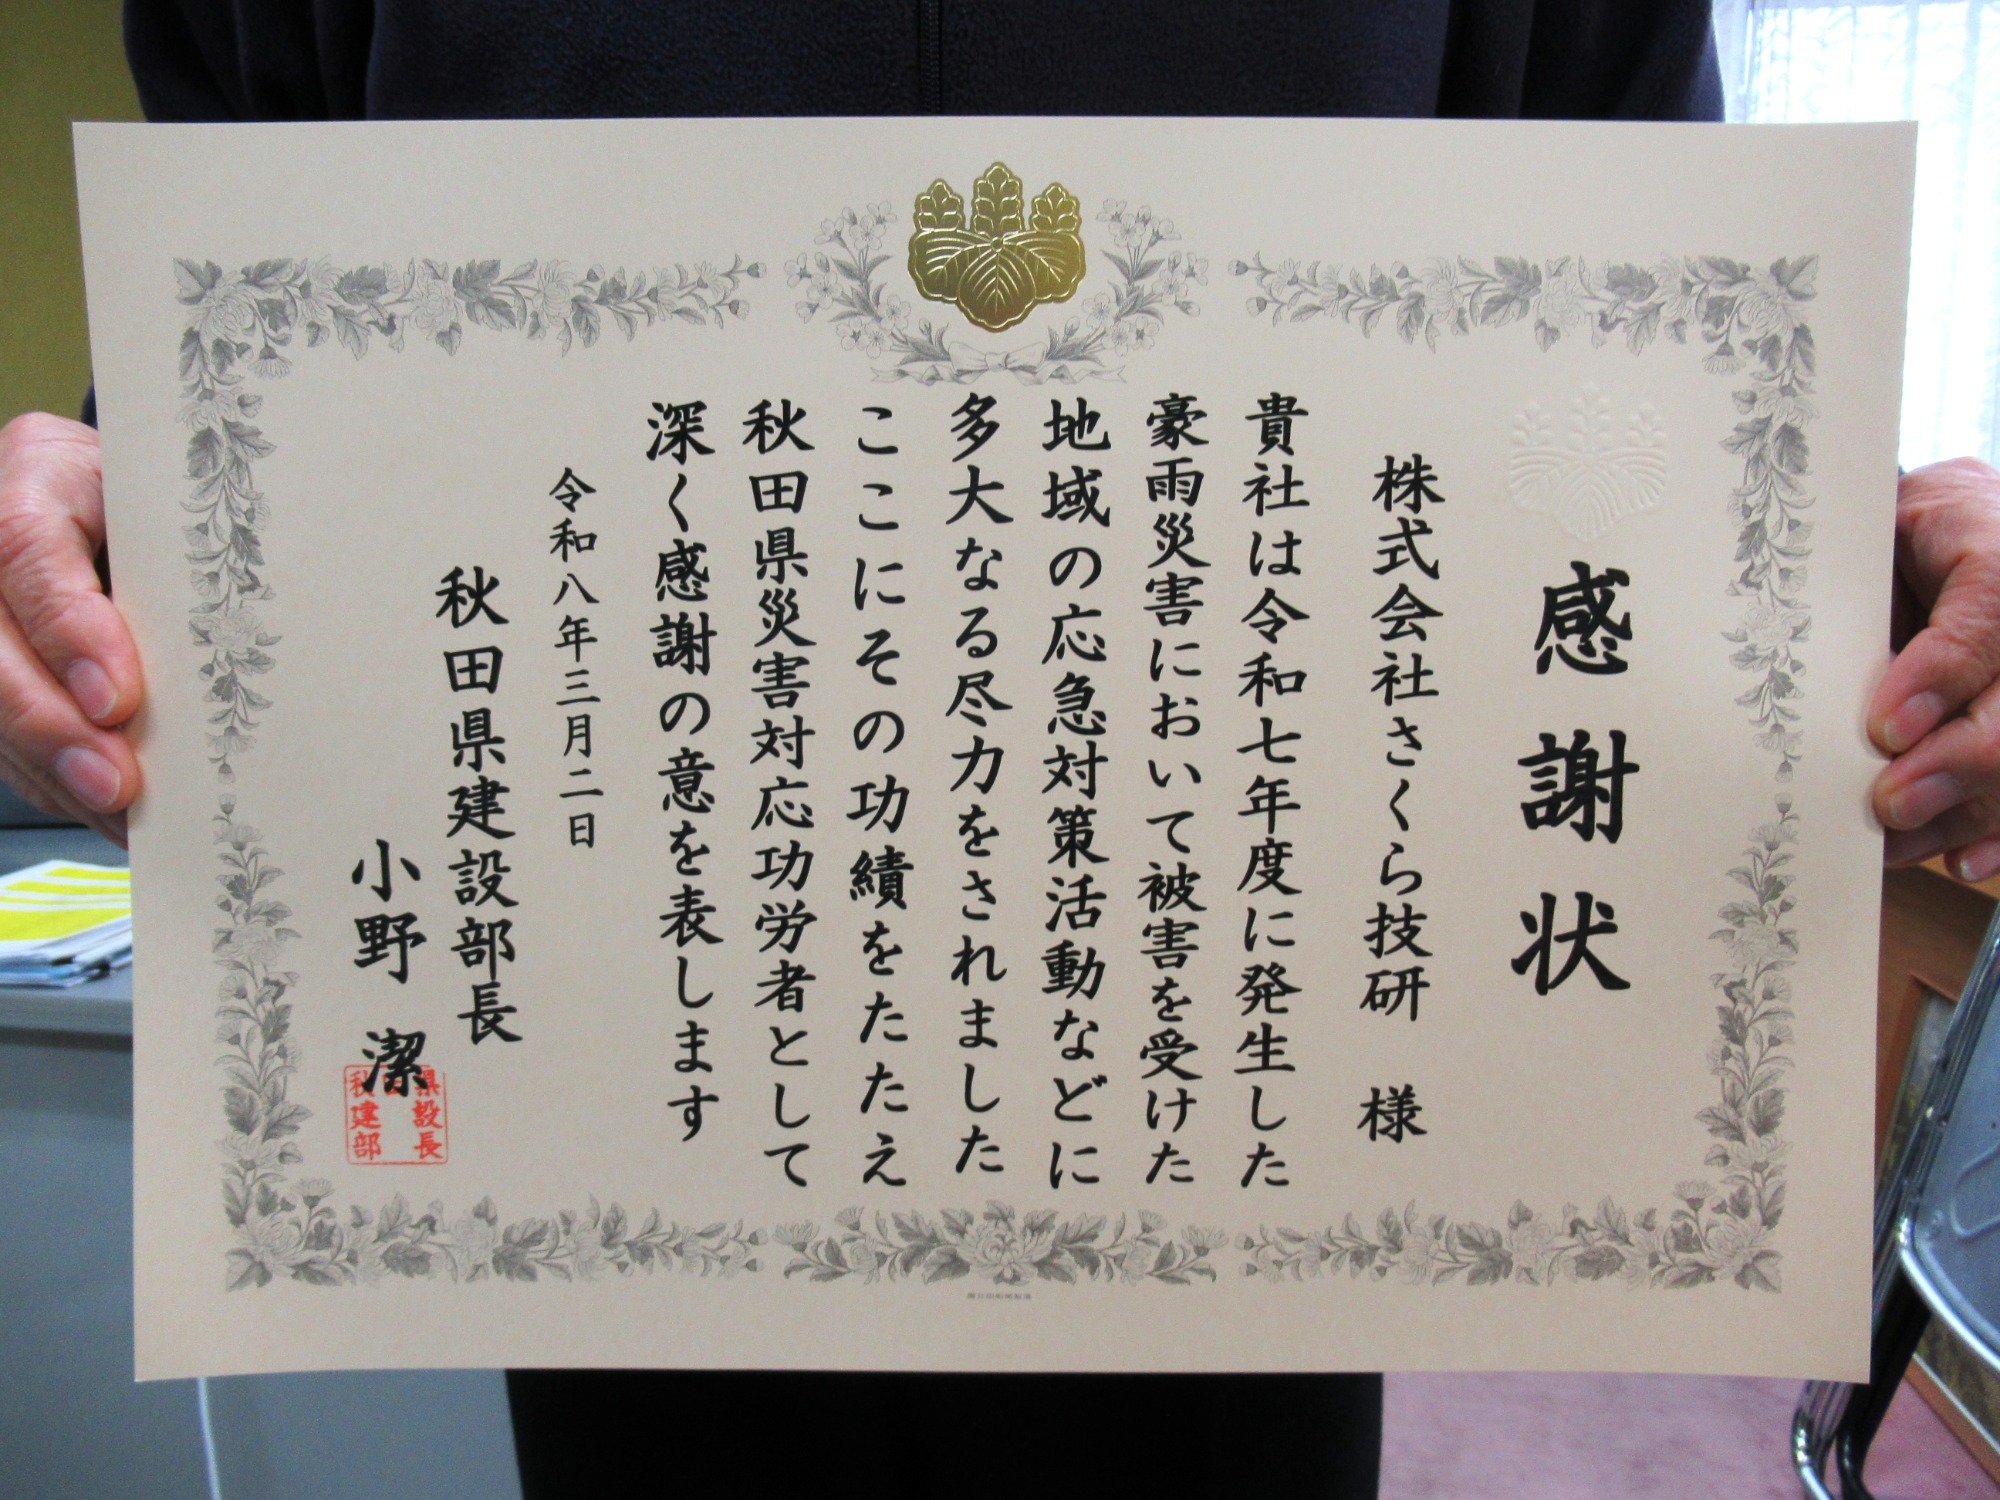 感謝状
株式会社さくら技研 様
貴社は令和七年度に発生した
豪雨災害において被害を受けた
地域の応急対策活動などに
多大なる尽力をされました
ここにその功績をたたえ
秋田県災害対応功労者として
深く感謝の意を表します
令和八年三月二日
秋田県建設部長
小野 潔
県設長
秋田建部